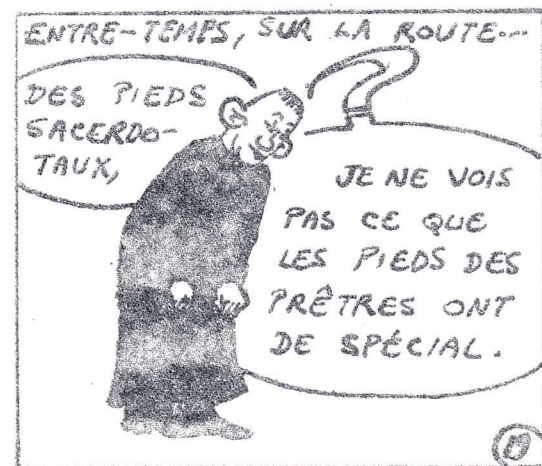 ENTRE-TEMPS, SUR LA ROUTE...
DES PIEDS
SACERDO-
TAUX,
JE NE VOIS
PAS CE QUE
LES PIEDS DES
PRÊTRES ONT
DE SPÉCIAL.